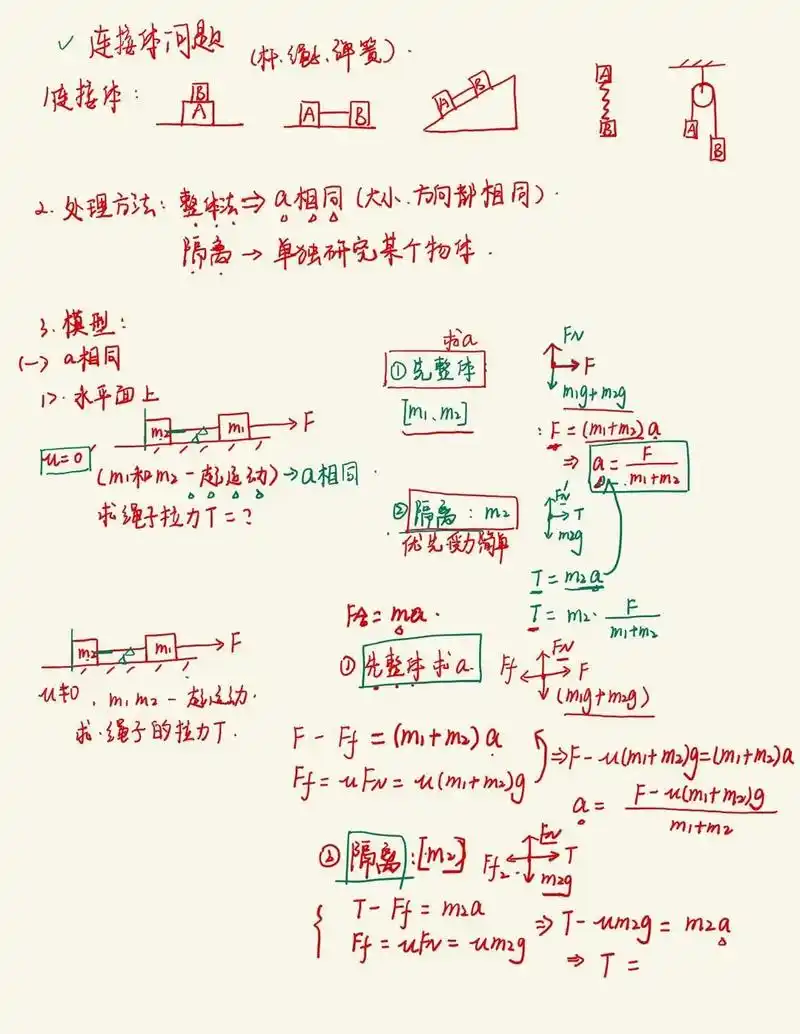 ✓ 连接体问题 (杆、绳、弹簧).
1连接体:
B
A
A B
A B
A
B
A
B
2. 处理方法: 整体法 ⇒ a相同 (大小、方向都相同).
隔离 → 单独研究某个物体.
3. 模型:
(一) a相同
1>. 水平面上
m2 m1 F
u=0
(m1和m2一起运动) → a相同.
求绳子拉力T=?
求a
①先整体
[m1、m2]
FN
F
m1g+m2g
: F=(m1+m2)a
⇒ a=F/(m1+m2)
②隔离: m2
优先受力简单
FN'
T
m2g
T=m2a
T=m2·F/(m1+m2)
m2 m1 F
u≠0, m1 m2一起运动.
求.绳子的拉力T.
F合=ma.
①先整体求a.
FN
Ff F
(m1g+m2g)
F-Ff=(m1+m2)a
Ff=uFN=u(m1+m2)g
⇒F-u(m1+m2)g=(m1+m2)a
a=(F-u(m1+m2)g)/(m1+m2)
②隔离:[m2]
FN
Ff2 T
m2g
T-Ff=m2a
Ff=uFN=um2g
⇒T-um2g=m2a
⇒ T=